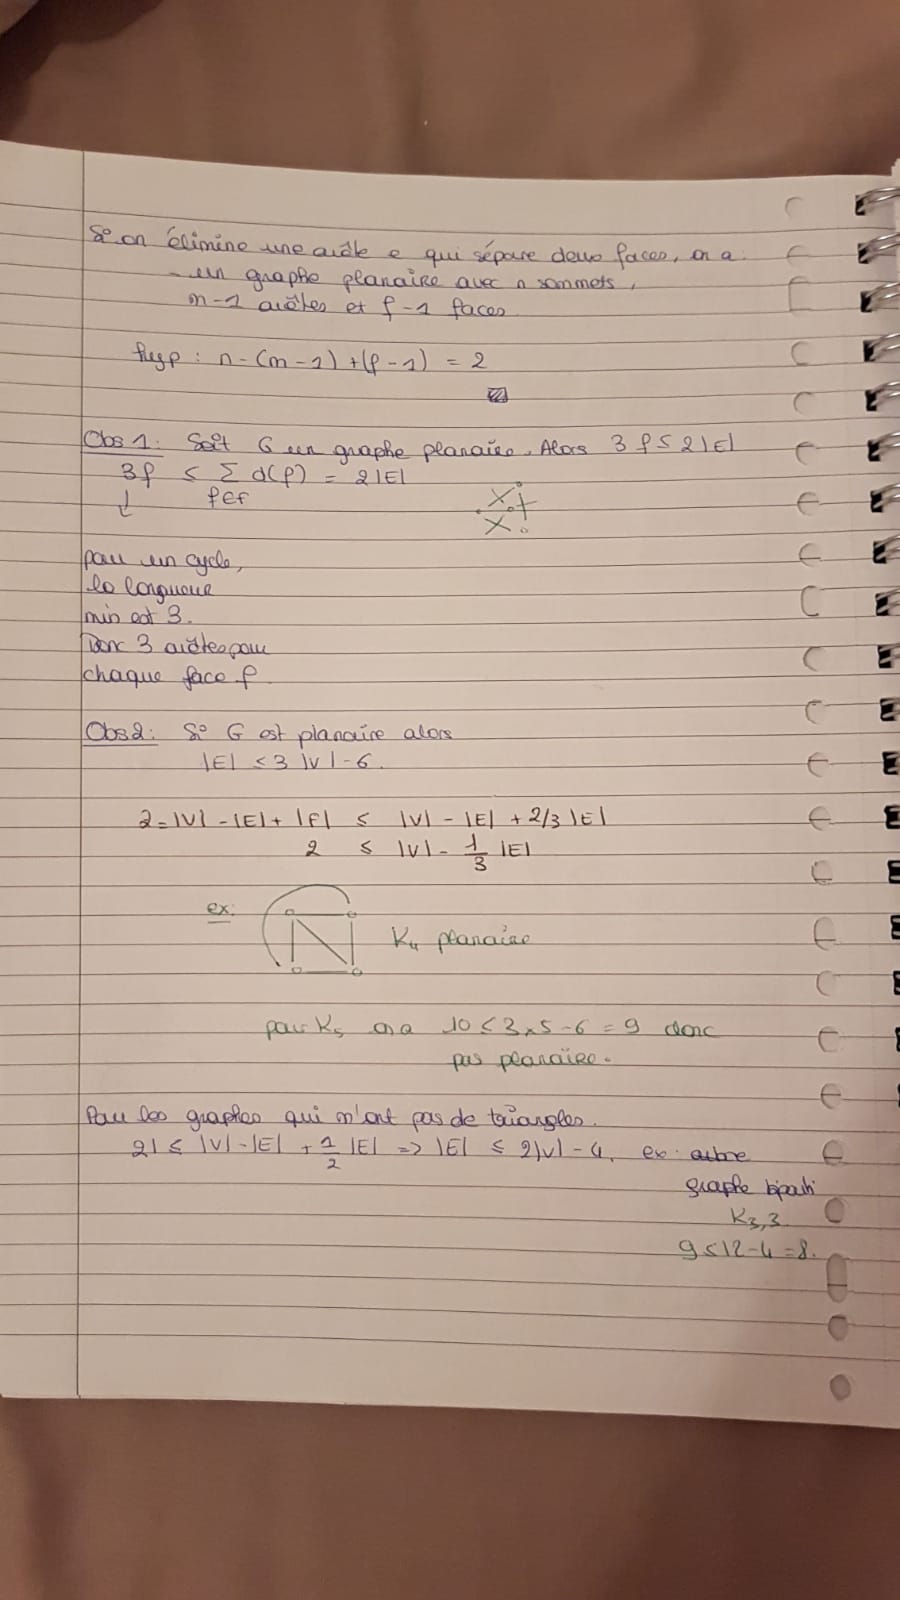 Si on élimine une arête e qui sépare deux faces, on a
- un graphe planaire avec n sommets,
m-1 arêtes et f-1 faces.
hyp : n-(m-1)+(f-1) = 2
Obs 1: Soit G un graphe planaire. Alors 3f ≤ 2|E|
3f ≤ Σ d(f) = 2|E|
f∈F
↓
pour un cycle,
la longueur
min est 3.
Donc 3 arêtes pour
chaque face f
Obs 2: Si G est planaire alors
|E| ≤ 3|V|-6.
2=|V|-|E|+|F| ≤ |V|-|E|+2/3|E|
2 ≤ |V|-1/3|E|
ex:
K4 planaire
pour K5 on a 10 ≤ 3x5-6 = 9 donc
pas planaire.
Pour les graphes qui n'ont pas de triangles.
2| ≤ |V|-|E| + 1/2 |E| => |E| ≤ 2|V|-4. ex: arbre
graphe biparti
K3,3
9≤12-4=8.